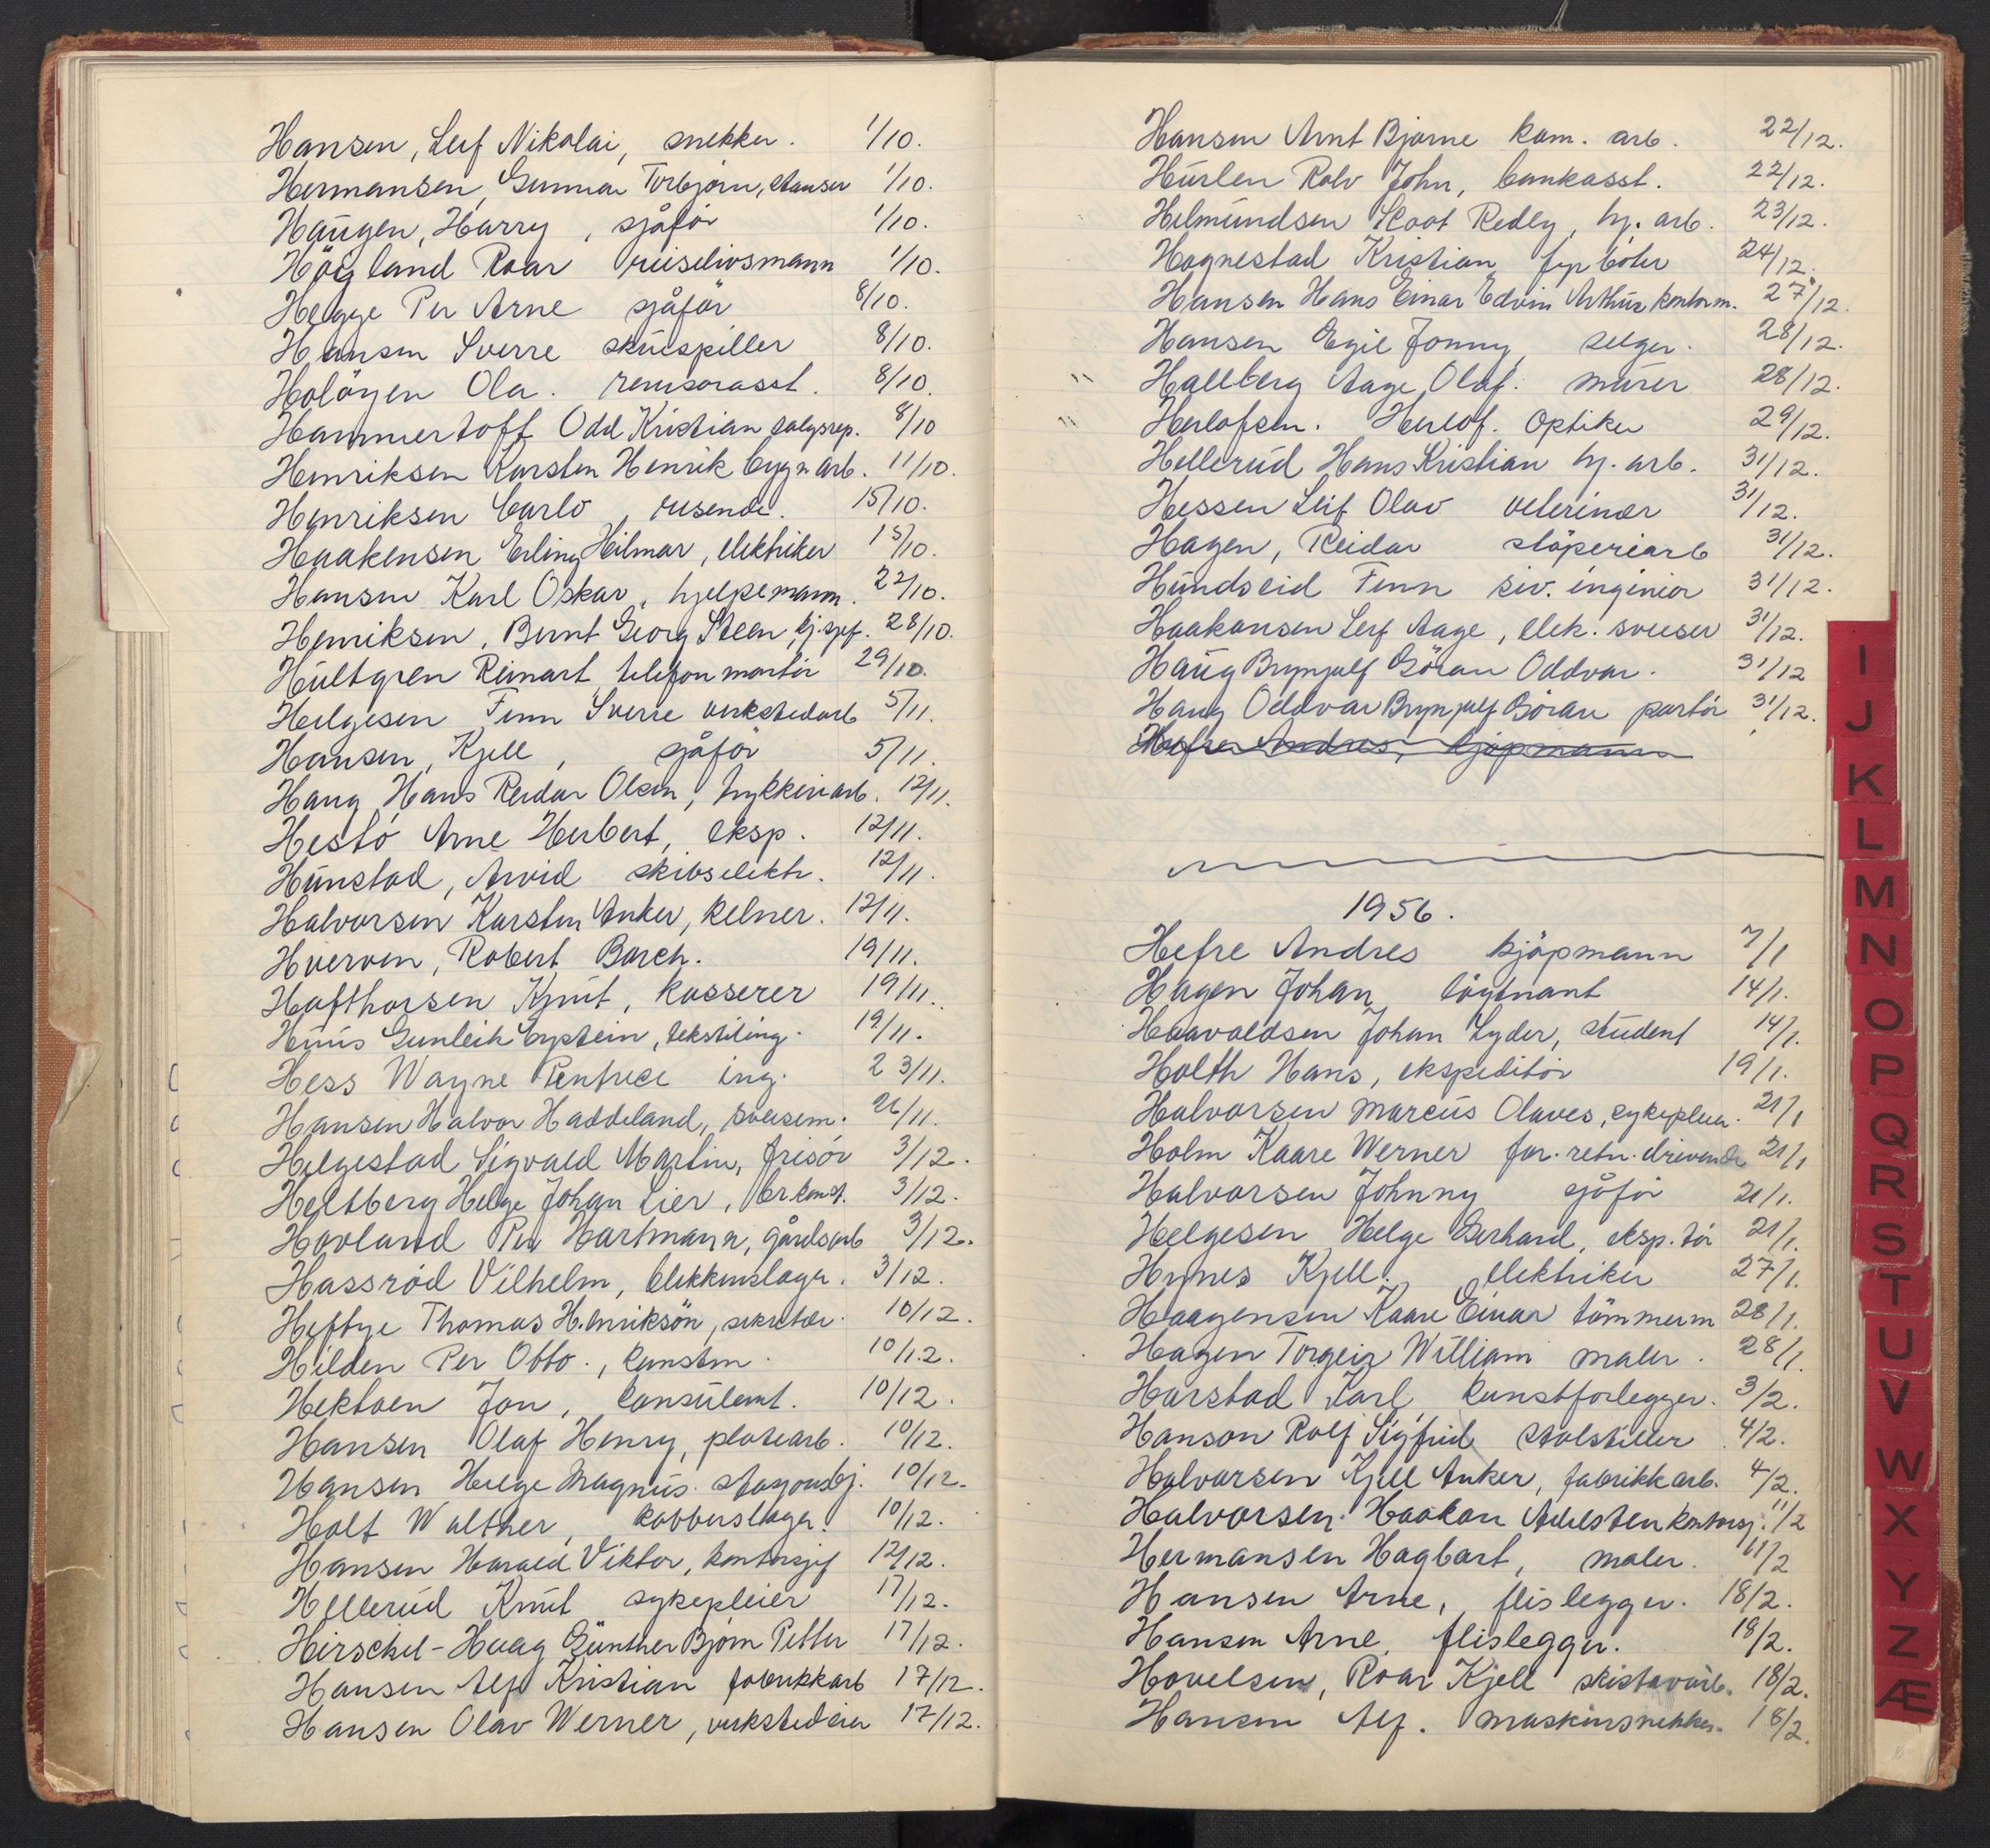 Hansen, Leif Nikolai, snekker. 1/10.
Hermansen, Gunnar Torbjørn, stanser 1/10.
Haugen, Harry, sjåför 1/10.
Högland Roar reiselivsmann 1/10.
Hegge Per Arne sjåför 8/10.
Hansen Sverre skuespiller 8/10.
Holöyen Ola. revisorasst. 8/10.
Hammertoft Odd Kristian salgsrep. 8/10
Henriksen Karsten Henrik bygn arb. 11/10.
Henriksen Carlo, reisende. 15/10.
Haakensen Erling Hilmar, elektriker 15/10.
Hansen Karl Oskar, hjelpemann. 22/10.
Henriksen, Bernt Georg Steen, bj.sjef. 28/10.
Hultgren Reinart telefonmontör 29/10.
Helgesen Finn Sverre verkstedarb 5/11.
Hansen, Kjell, sjåför 5/11.
Haug Hans Reidar Olsen, trykkeriarb. 12/11.
Hestö Arne Herbert, eksp. 12/11.
Hunstad, Arvid skibselektr. 12/11.
Halvorsen Karsten Anker, kelner. 12/11.
Hverven, Robert Barch. 19/11.
Hafthorsen Knut, kasserer 19/11.
Huus Gunleik Eystein, tekstiling. 19/11.
Hess Wayne Pentrece ing. 23/11.
Hansen Halvor Haddeland, sveisem. 26/11.
Helgestad Sigvald Martin, frisör 3/12.
Heltberg Helge Johan Lier, br.konst. 3/12.
Hovland Per Hartmann, gårdsarb 3/12.
Hassröd Vilhelm, blikkenslager. 3/12.
Heftye Thomas Henriksön, sekretær. 10/12.
Hilden Per Otto., kunstm. 10/12.
Hektoen Jon, konsulent. 10/12.
Hansen Olaf Henry, platearb. 10/12.
Hansen Helge Magnus. stasjonsbj. 10/12.
Holt Walther, kobberslager. 10/12.
Hansen Harald Viktor, kontorsjef 12/12.
Hellerud Knut sykepleier 17/12.
Hirschel-Haag Günther Bjørn Petter 17/12.
Hansen Alf Kristian fabrikkarb 17/12.
Hansen Olav Werner, verkstedeier 17/12.
Hansen Arnt Bjarne kom. arb. 22/12.
Hurlen Rolv John, bankasst. 22/12.
Helmundsen Skoot Redly, hj. arb. 23/12.
Hognestad Kristian fyrböter 24/12.
Hansen Hans Einar Edvin Arthur kontorm. 27/12.
Hansen Egil Jonny, selger. 28/12.
Hallberg Aage Olaf. murer 28/12.
Herlofsen. Herlof. Optiker 29/12.
Hellerud Hans Kristian hj. arb. 31/12.
Hessen Leif Olav veterinær 31/12.
Hagen, Reidar stöperiarb 31/12.
Hundseid Finn siv. ingeniör 31/12.
Haakonsen Leif Aage, elek. sveiser 31/12.
Haug Brynjulf Göran Oddvar. 31/12
Haug Oddvar Brynjulf Göran portör 31/12.
Hefre Andres, kjöpmann
1956.
Hefre Andres kjöpmann 7/1
Hagen Johan löytnant 14/1.
Haavaldsen Johan Lyder, student 14/1.
Holth Hans, ekspeditör 19/1.
Halvorsen Marcus Olaves, sykepleier. 21/1
Holm Kaare Werner for.retn.drivende 21/1
Halvorsen Johnny sjåför 21/1.
Helgesen Helge Gerhard, eksp.tör 21/1.
Hynes Kjell. elektriker 27/1.
Haagensen Kaare Einar tömmerm 28/1.
Hagen Torgeir William maler. 28/1.
Harstad Karl kunstforlegger. 3/2.
Hanson Rolf Sigfrid stolstiller 4/2.
Halvorsen Kjell Anker, fabrikkarb. 4/2.
Halvorsen Haakon Adelsten kontorsj. 11/2
Hermansen Hagbart, maler. 11/2
Hansen Arne, flislegger. 18/2.
Hansen Arne, flislegger. 18/2.
Hovelsen, Roar Kjell skistavarb. 18/2.
Hansen Alf. maskinsnekker. 18/2.
I
J
K
L
M
N
O
P
Q
R
S
T
U
V
W
X
Y
Z
Æ